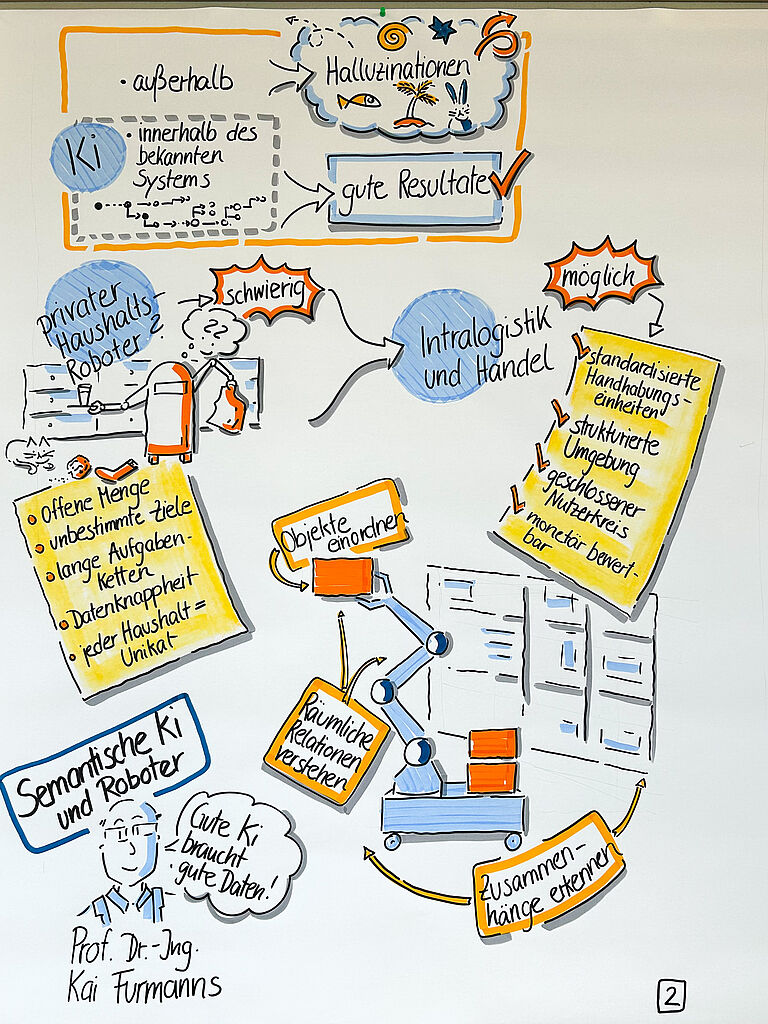 • außerhalb
Halluzinationen
Ki
• innerhalb des
bekannten
Systems
gute Resultate
privater
Haushalts-
Roboter
schwierig
??
möglich
Intralogistik
und Handel
standardisierte
Handhabungs-
einheiten
strukturierte
Umgebung
geschlossener
Nutzerkreis
monetär bewert-
bar
• Offene Menge
• unbestimmte Ziele
• lange Aufgaben-
ketten
• Datenknappheit
• jeder Haushalt =
Unikat
Objekte
einordnen
Räumliche
Relationen
verstehen
Zusammen-
hänge erkennen
Semantische Ki
und Roboter
Gute Ki
braucht
gute Daten!
Prof. Dr.-Ing.
Kai Furmanns
2